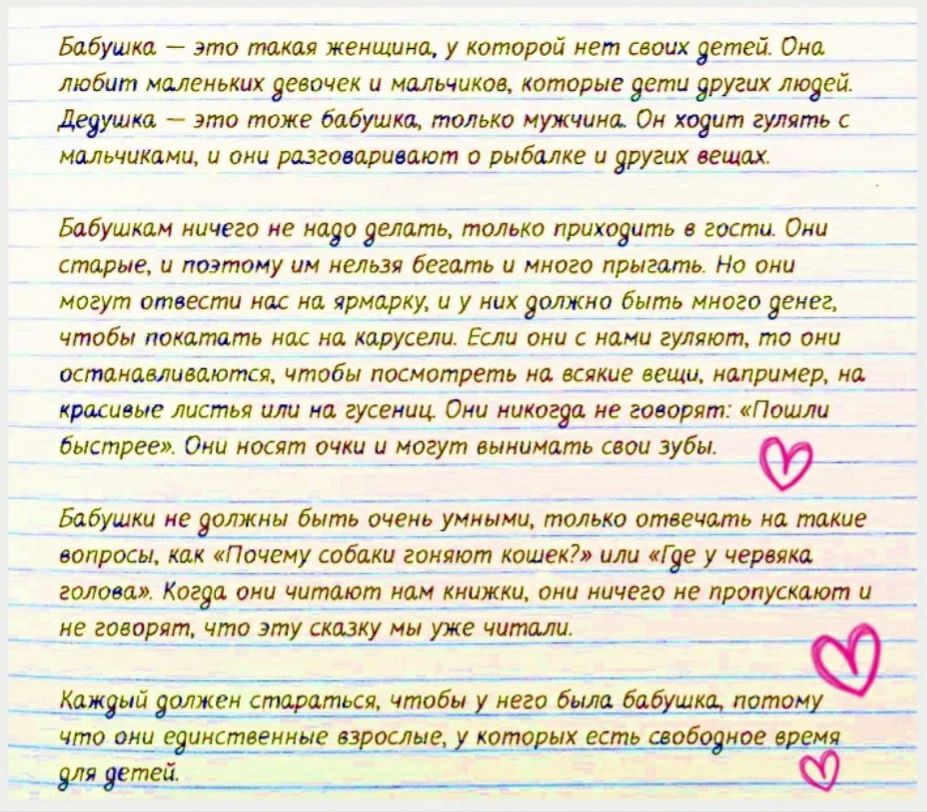 Бабушка — это такая женщина, у которой нет своих детей. Она
любит маленьких девочек и мальчиков, которые дети других людей.
Дедушка — это тоже бабушка, только мужчина. Он ходит гулять с
мальчиками, и они разговаривают о рыбалке и других вещах.
Бабушкам ничего не надо делать, только приходить в гости. Они
старые, и поэтому им нельзя бегать и много прыгать. Но они
могут отвести нас на ярмарку, и у них должно быть много денег,
чтобы покатать нас на карусели. Если они с нами гуляют, то они
останавливаются, чтобы посмотреть на всякие вещи, например, на
красивые листья или на гусениц. Они никогда не говорят: «Пошли
быстрее». Они носят очки и могут вынимать свои зубы.
Бабушки не должны быть очень умными, только отвечать на такие
вопросы, как «Почему собаки гоняют кошек?» или «Где у червяка
голова». Когда они читают нам книжки, они ничего не пропускают и
не говорят, что эту сказку мы уже читали.
Каждый должен стараться, чтобы у него была бабушка, потому
что они единственные взрослые, у которых есть свободное время
для детей.